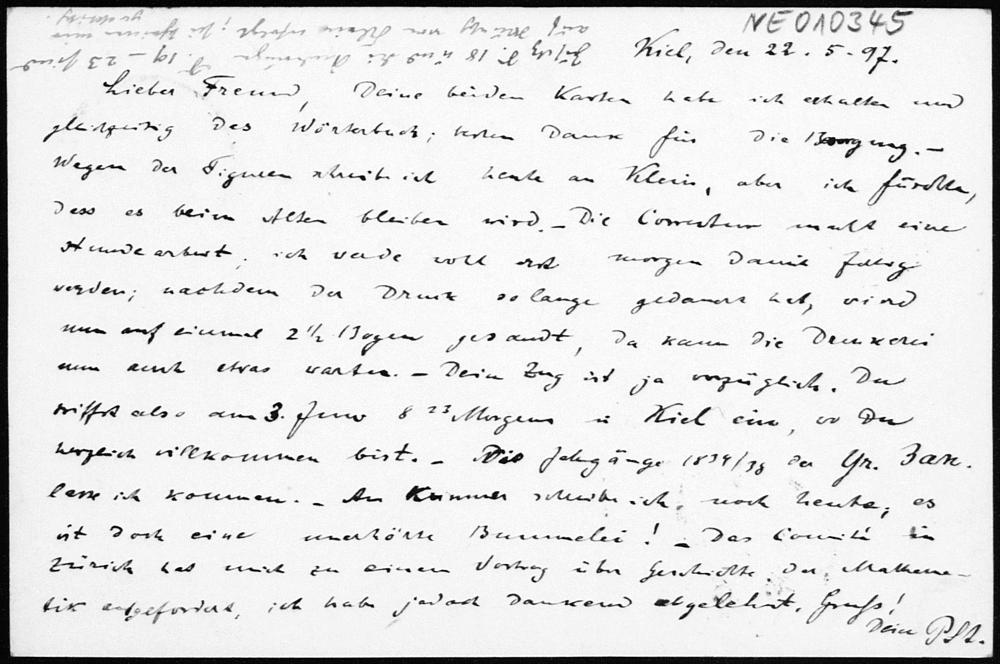 NE010345
Kiel, den 22. 5. 97.
Lieber Freund, Deine beiden Karten habe ich erhalten und
gleichzeitig das Wörterbuch; besten Dank für die Besorgung. –
Wegen der Figuren schreib ich heute an Klein, aber ich fürchte,
dass es beim Alten bleiben wird. – Die Correctur macht eine
Hundearbeit; ich werde wohl erst morgen damit fertig
werden; nachdem der Druck so lange gedauert hat, wird
nun auf einmal 2 1/2 Bogen gesandt, da kann die Druckerei
nun auch etwas warten. – Dein Zug ist ja vorzüglich. Du
triffst also am 3. Juni 8 23 Morgens in Kiel ein, wo Du
herzlich willkommen bist. – Die Jahrgänge 1834/38 der
lasse ich kommen. – An Kummer schreibe ich noch heute; es
ist doch eine unerhörte Bummelei! – Das Comité in
Zürich hat mich zu einem Vortrag über Geschichte der Mathema-
tik aufgefordert, ich habe jedoch dankend abgelehnt. Gruss!
Dein P.St.